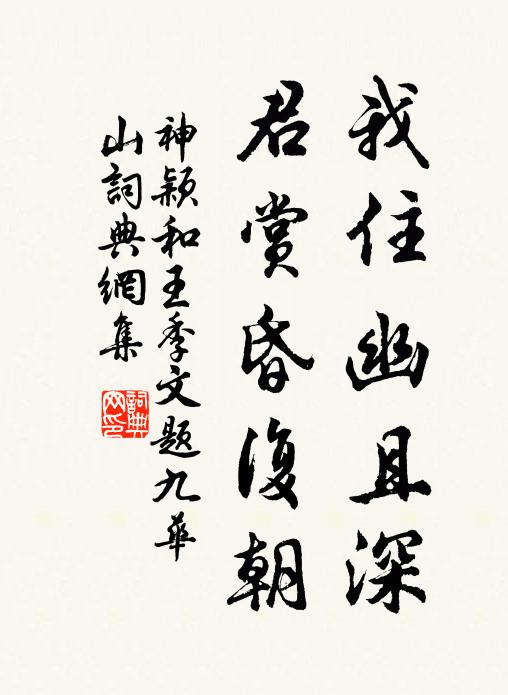 我住幽且深
君賞昏復朝
神穎和王季文題九華
山詞典網集
詞典网印